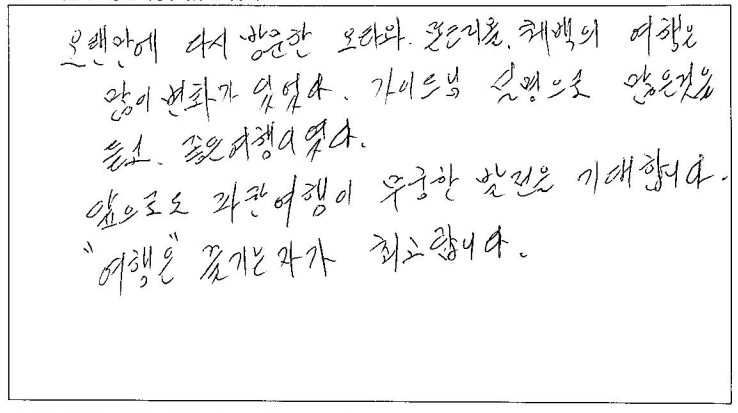 오랜만에 다시 방문한 오타와. 몬트리올, 퀘백의 여행은
많이 변화가 있었다. 가이드님 설명으로 많은것을
듣고. 좋은여행이였다.
앞으로도 여행이 무궁한 발전을 기대합니다.
"여행은" 즐기는자가 최고합니다.